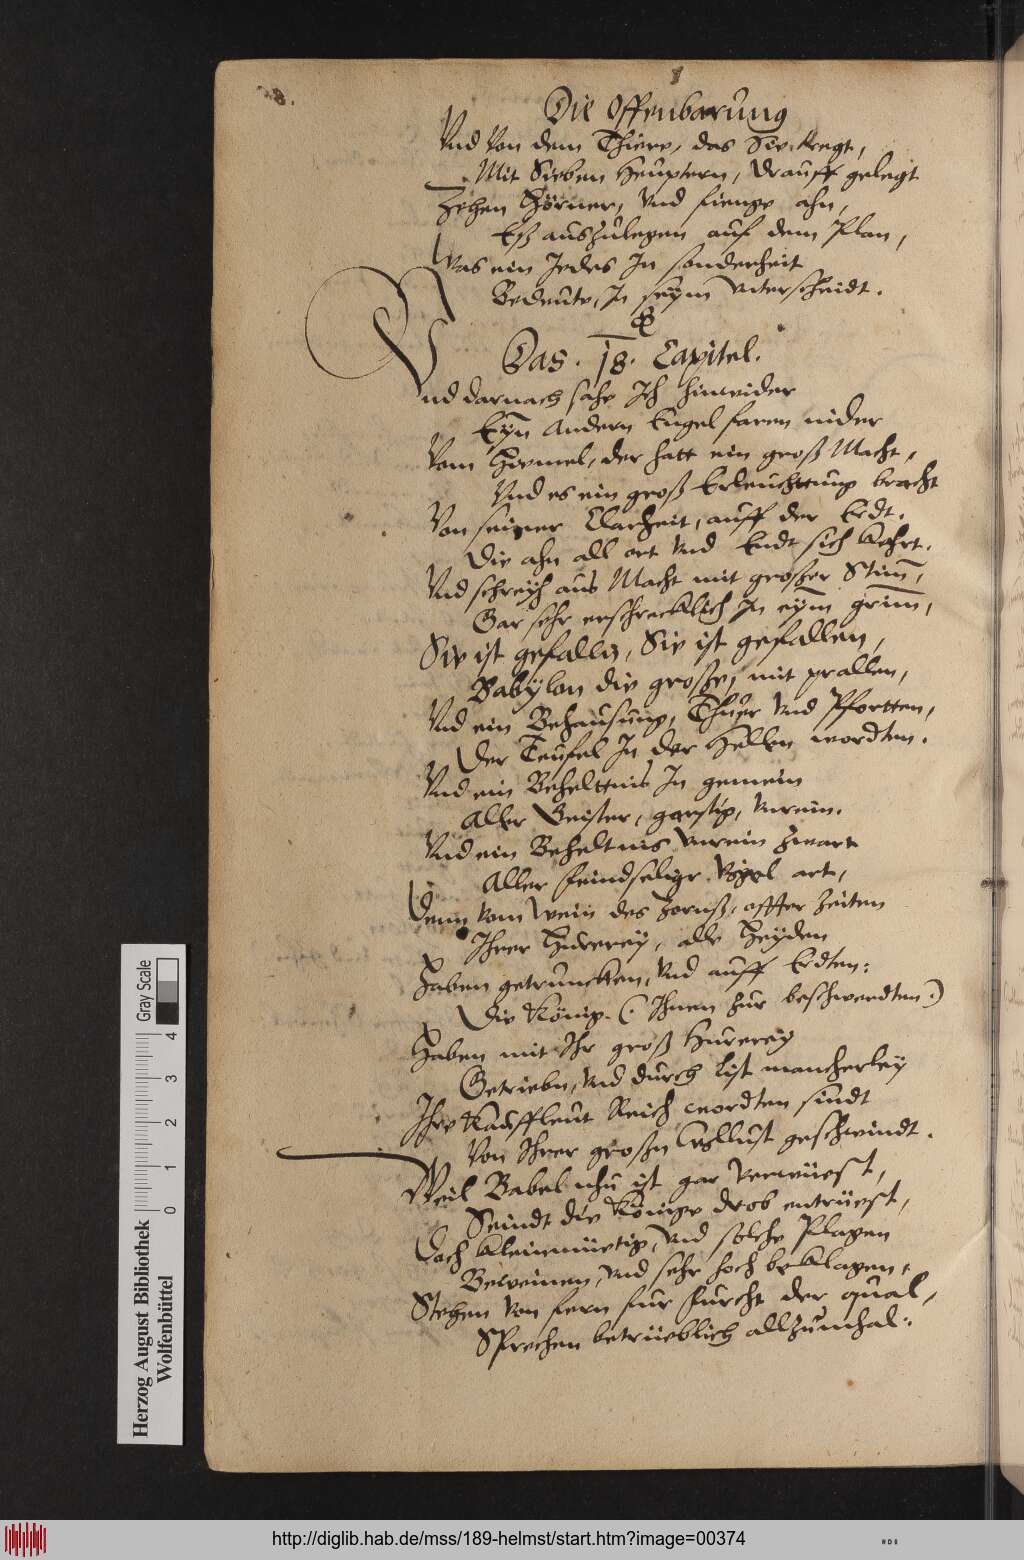 8
Die Offenbarung
Vnd Von dem Thiere, das Sie kregt,
Mit Sieben Heuptern, Drauff gelegt
Zehen Hörner, Vnd fienge ahn,
Eß auszulegen auf dem Plan,
Was ein Jedes In sonderheit
Bedeute, In seym vnterscheidt.
Das. 18. Capitel.
Vnd darnach sahe Ich hinwider
Eyn Andern Engel faren nider
Vom Himmel, der hatt ein groß Macht,
Vnd es ein groß Erleuchttung bracht
Von seiner Clarheit, auff der Erdt.
Die ahn all ort Vnd Endt sich kehrt.
Vnd schreyh aus Macht mit großer Stim̄,
Gar sehr erschrecklich In eym̄ grim̄,
Sie ist gefalln, Sie ist gefallen,
Babylon die große, mit prallen,
Vnd ein Behausung, Thuer Vnd Pfortten,
Der Teufel In der Hellen wordten.
Vnd ein Beheltnis In gemein
Aller Geister, garstig, Vnrein.
Vnd ein Beheltnis Vnrein zwart
Aller feindselige Vögel art,
Denn Vom Wein des Zornß, offter Zeiten
Ihrer Hurerey, alle Heyden
Haben getruncken, Vnd auff Erdten:
Die König (. Ihnen zur beschwerdten.)
Haben mit Ihr groß Hurerey
Getriebn, Vnd durch list mancherley
Ihre Kauffleut Reich wordten sindt
Von Ihrer großn Wollust geschwindt.
Weil Babel nhu ist gar verwüest,
Seindt die Könige drob entrüest,
Doch kleinmüetig, Vnd solche Plagen
Beweinen, Vnd sehr hoch beklagen,
Stehen Von fern fur furcht der qual,
Sprechen betrüeblich allzumhal:
Herzog August Bibliothek
Wolfenbüttel
0 1 2 3 4
Gray Scale
http://diglib.hab.de/mss/189-helmst/start.htm?image=00374